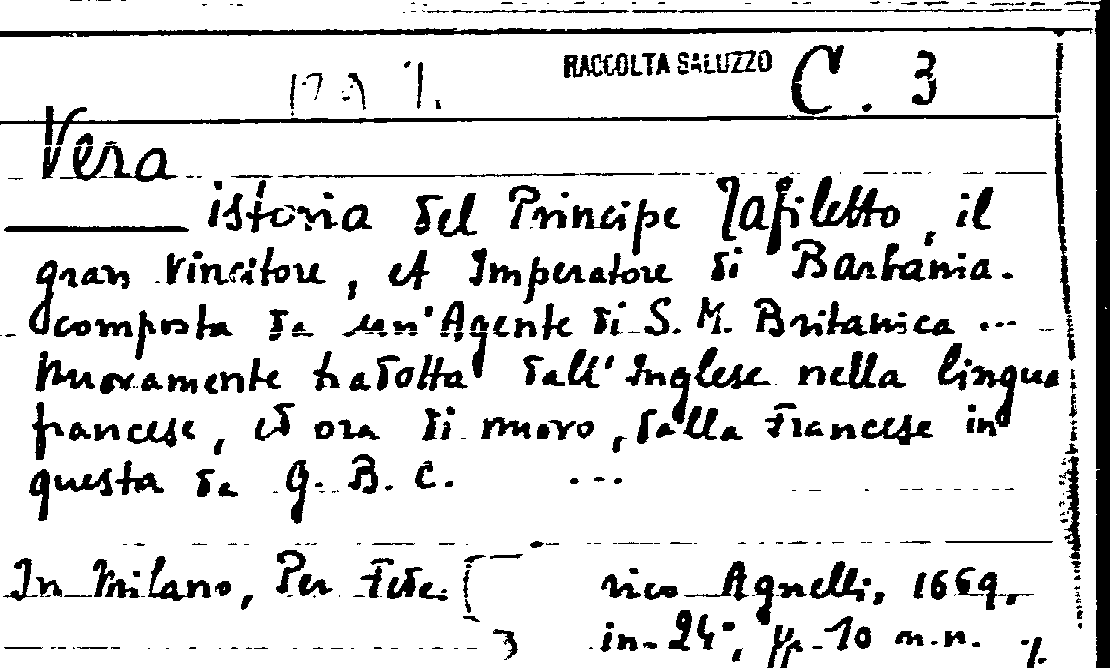 RACCOLTA SALUZZO C. 3
Vera
istoria del Principe Tafiletto, il
gran Vincitore, et Imperatore di Barbaria.
composta da un'Agente di S. M. Britanica ...
Nuovamente tradotta dall'Inglese nella lingua
francese, et ora di nuovo, dalla Francese in
questa da G. B. C. ...
In Milano, Per Fede: [ rico Agnelli, 1669,
in-24°, pp. 10 n.n. %